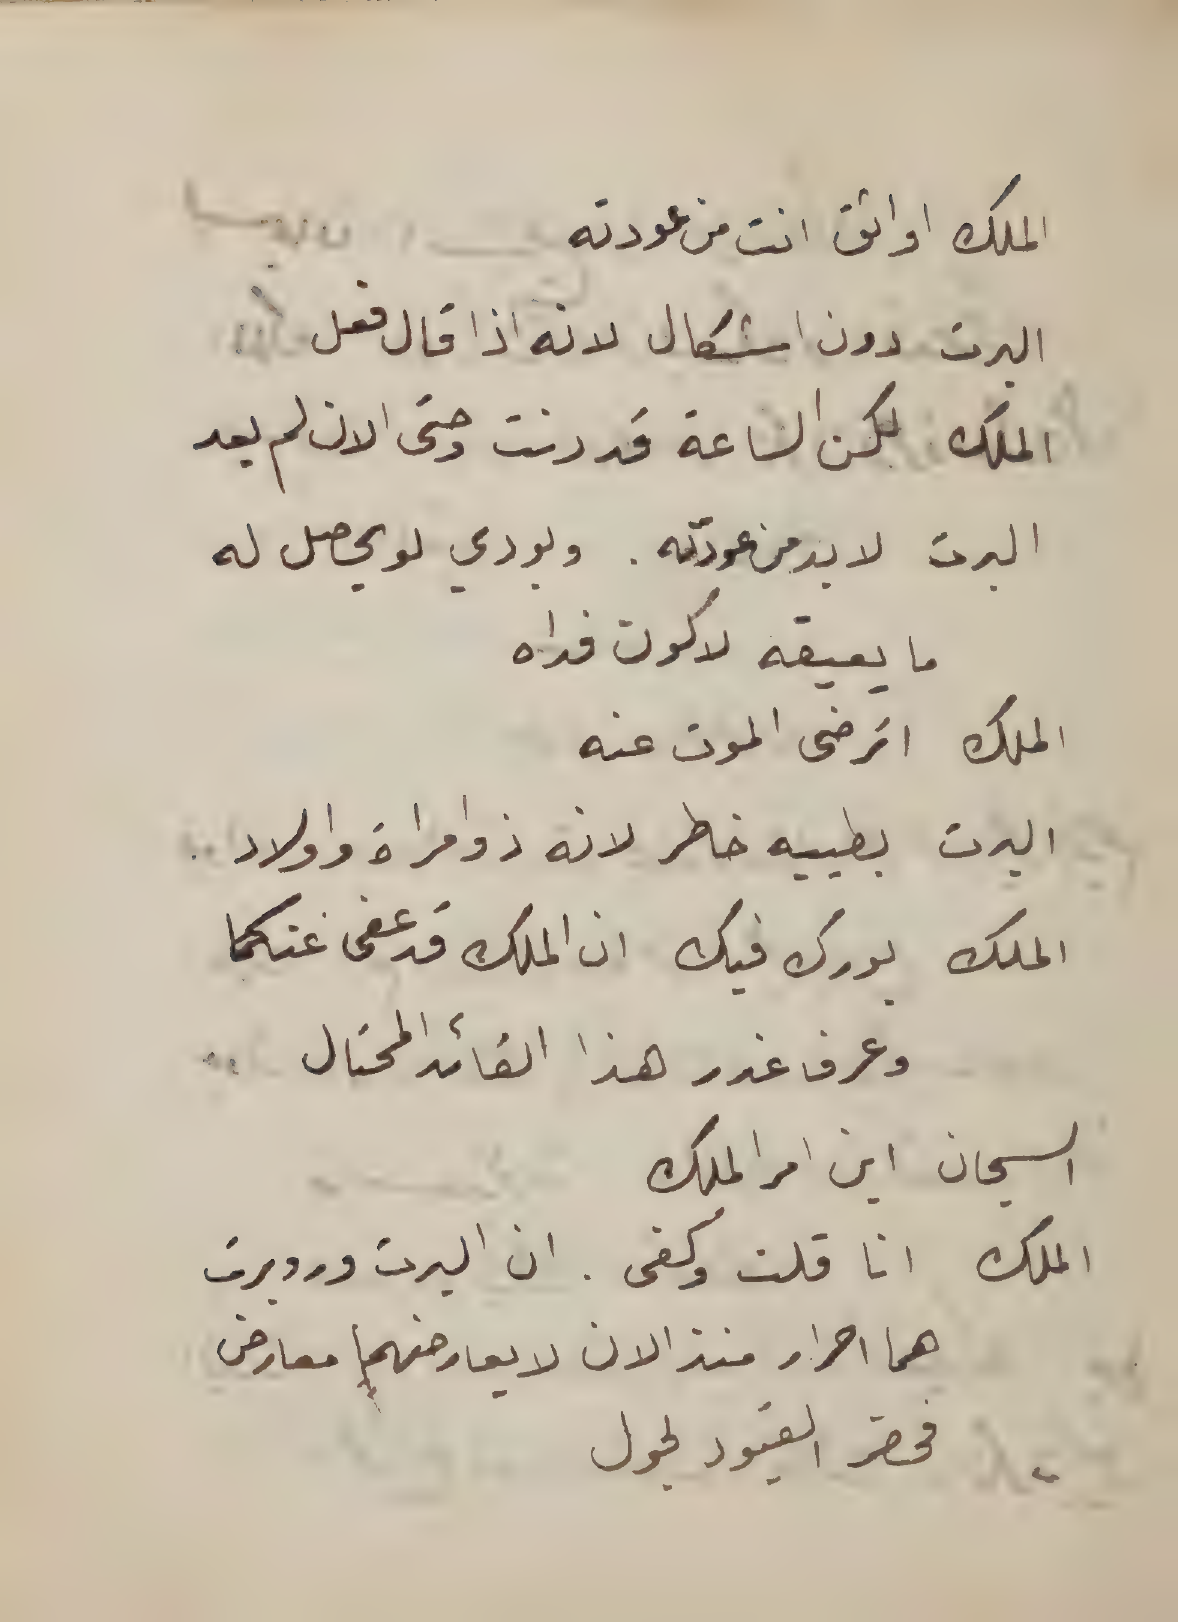 الملك اواثق انت من عودته
البرت دون اشكال لانه اذا قال فعل
الملك لكن الساعة قد دنت وحتى الان لم يعد
البرت لا بد من عودته . وبودي لو يحصل له
ما يعيقه لاكون فداه
الملك اترضى الموت عنه
البرت بطيبه خاطر لانه ذو امراة واولاد
الملك بورك فيك ان الملك قد عفى عنكما
وعرف غدر هذا القائد المحتال
السجان اين امر الملك
الملك انا قلت وكفى . ان البرت وروبرت
هما احرار منذ الان لا يعارضهما معارض
فحضر القيود لجول